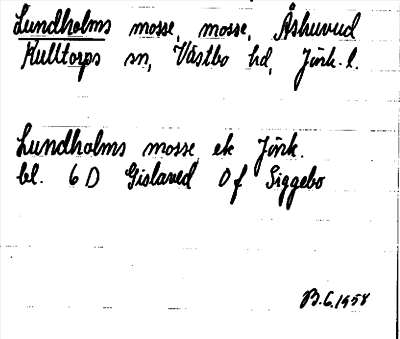 Lundholms mosse, mosse, Åshuvud
Kulltorps sn, Västbo hd, Jönk. l.
Lundholms mosse ek Jönk.
bl. 6 D Gislaved 0 f Siggebo
B.G. 1958